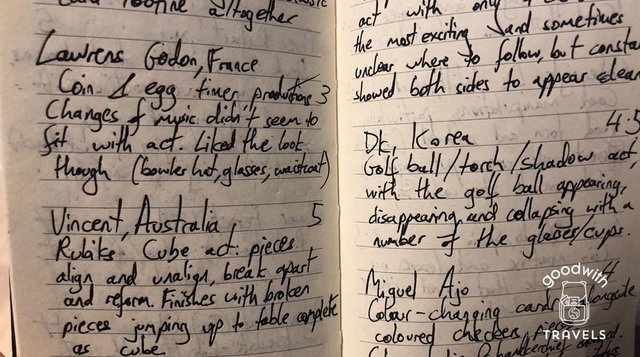 routine altogether
Lawrens Godon, France
Coin & egg timer productions 3
Changes of music didn't seem to
fit with act. Liked the look
though (bowler hat, glasses, waistcoat)
Vincent, Australia 5
Rubiks Cube act: pieces
align and unalign, break apart
and reform. Finishes with broken
pieces jumping up to table complete
as cube
act with only
the most exciting and sometimes
unclear where to follow, but
showed both sides to appear
DK, Korea 4.5
Golf ball/torch/shadow act,
with the golf ball appearing,
disappearing and collapsing with a
number of the glasses/cups.
Miguel Ajo 4
Colour-changing cards alongside
coloured checkers
goodwith
TRAVELS